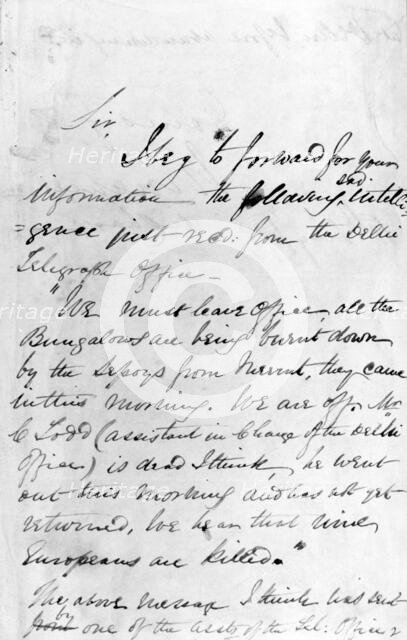 Sir
I beg to forward for your
sad
information the following Intelli
=gence just recd: from the Delhi
Telegraph Office –
"We must leave Office, all the
Bungalows are being burnt down
by the Sepoys from Meerut, they came
in this morning. We are off, Mr
C Todd (assistant in Charge of the Delhi
Office) is dead I think, he went
out this morning and has not yet
returned, We hear that nine
Europeans are killed."
The above message I think was sent
by
from one of the assts of the Tel: Office
Heritage
Heritage
Heritage
Heritage
Heritage
Heritage